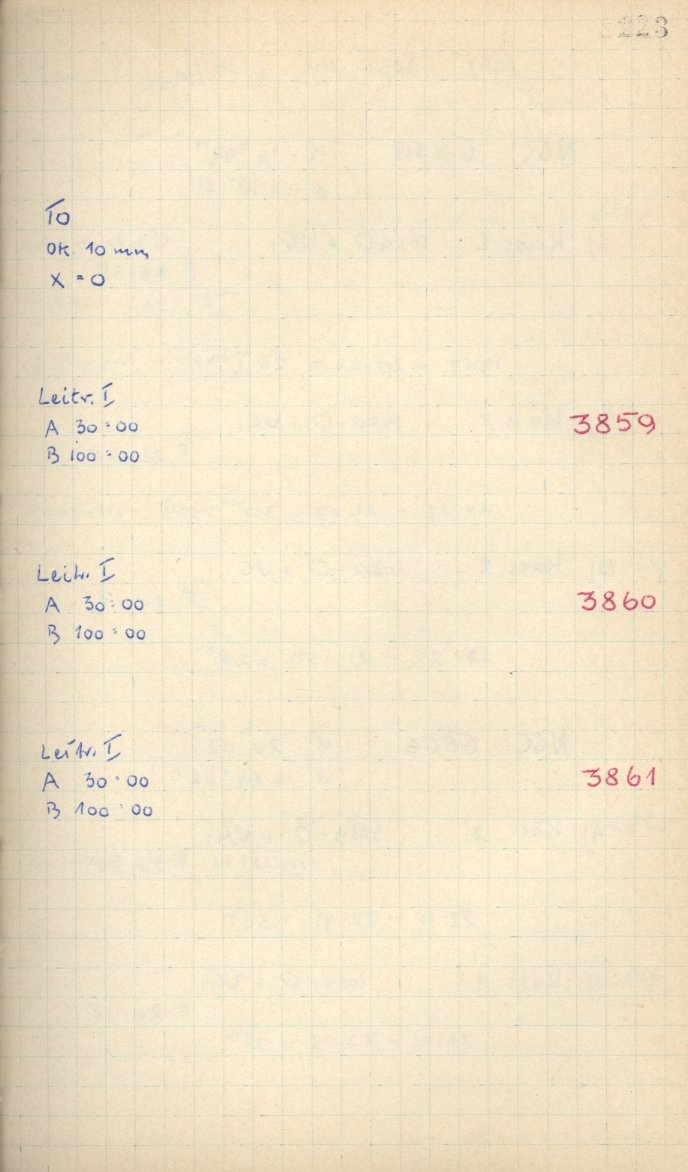 223
TO
OK. 10 mm
X = 0
Leitr. I
A 30:00 3859
B 100:00
Leitr. I
A 30:00 3860
B 100:00
Leitr. I
A 30:00 3861
B 100:00